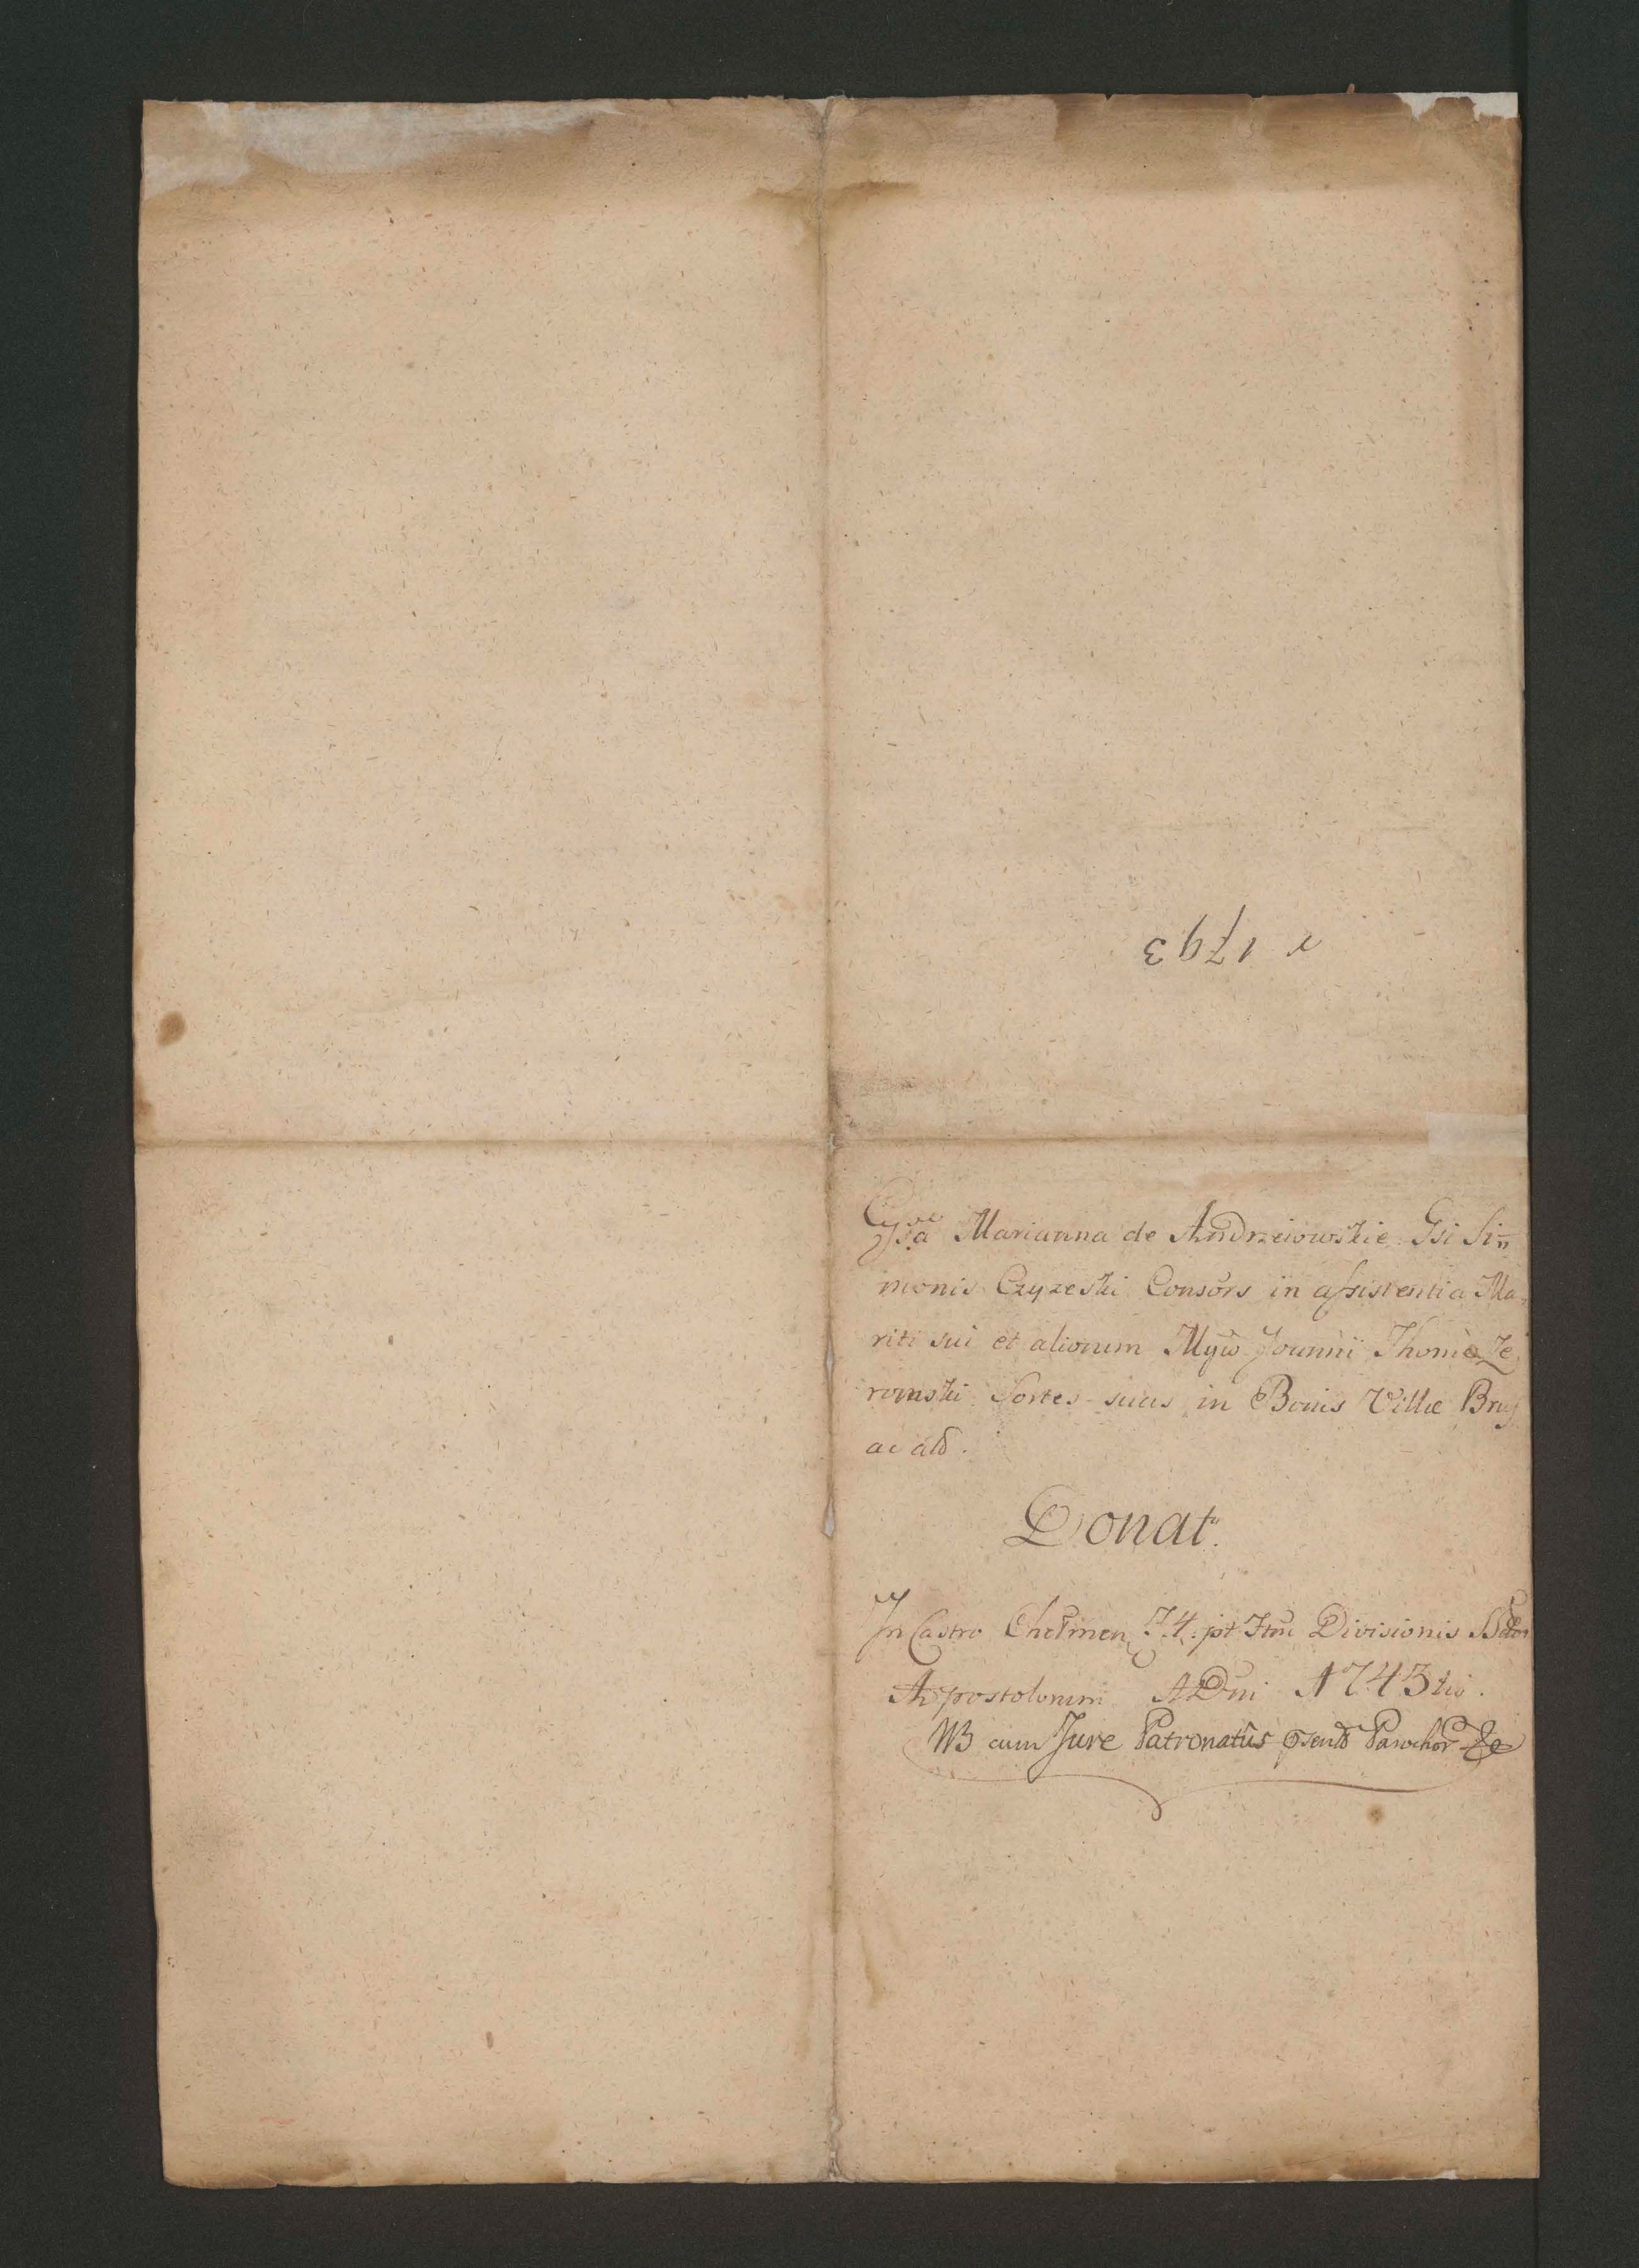 r 1793
Marianna de Andrzeiowskie Gsi Si
monis Czyzeski Consors in assistentia Ma
riti sui et aliorum Joanni Thomæ Ze
romski Sortes suas in Bonis Villæ Brus
ac ald.
Donat.
In Castro Chełmen. pt Divisionis
Apostolorum ADni 1743tio.
NB cum Jure Patronatûs Parochor &c